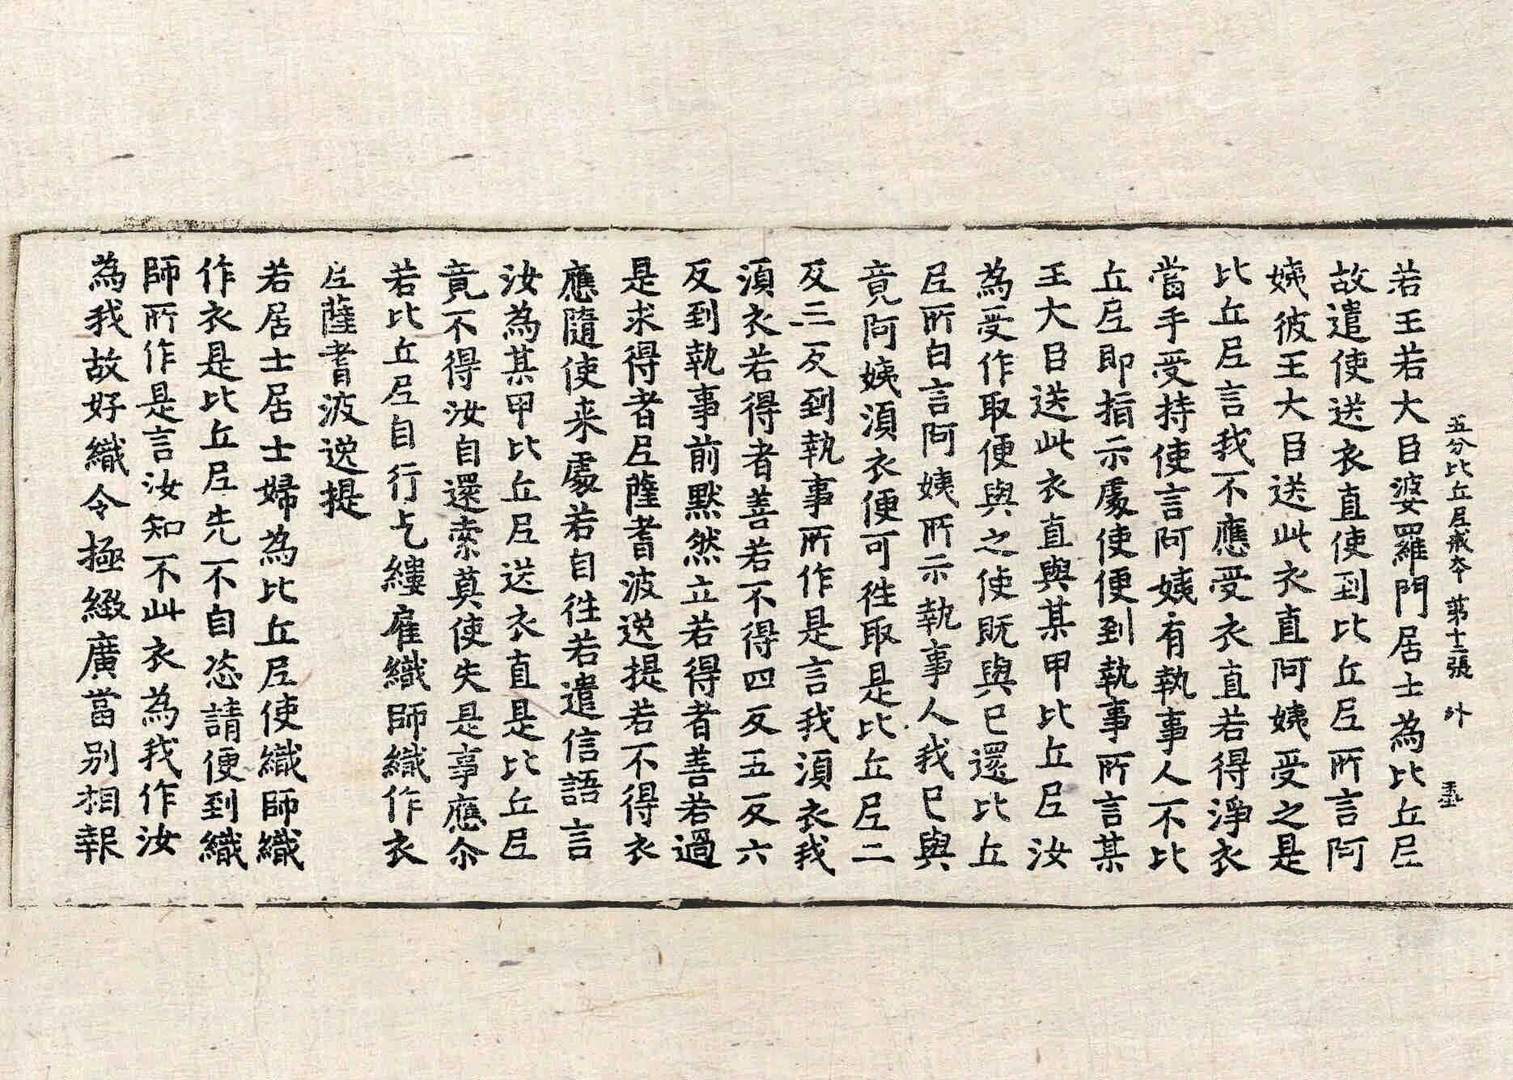 五分比丘尼戒本 第十二張 外
若王若大臣婆羅門居士為比丘尼
故遣使送衣直使到比丘尼所言阿
姨彼王大臣送此衣直阿姨受之是
比丘尼言我不應受衣直若得淨衣
當手受持使言阿姨有執事人不比
丘尼即指示處使便到執事所言某
王大臣送此衣直與某甲比丘尼汝
為受作取便與之使既與已還比丘
尼所白言阿姨所示執事人我已與
竟阿姨須衣便可往取是比丘尼二
反三反到執事所作是言我須衣我
須衣若得者善若不得四反五反六
反到執事前默然立若得者善若過
是求得者尼薩耆波逸提若不得衣
應隨使来處若自往若遣信語言
汝為某甲比丘尼送衣直是比丘尼
竟不得汝自還索莫使失是事應尒
若比丘尼自行乞縷雇織師織作衣
尼薩耆波逸提
若居士居士婦為比丘尼使織師織
作衣是比丘尼先不自恣請便到織
師所作是言汝知不此衣為我作汝
為我故好織令極緻廣當別相報